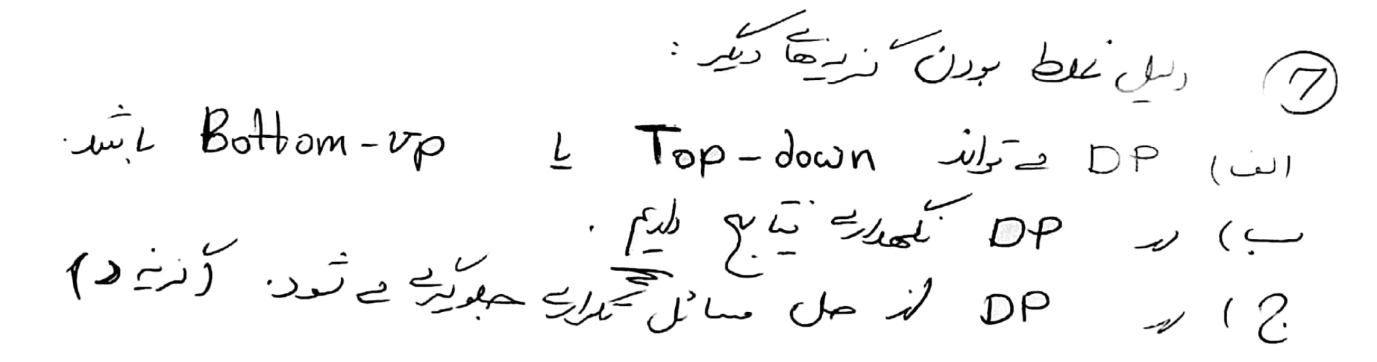 ⑦ دلیل غلط بودن گزینه‌های دیگر :
الف) DP می‌تواند Top-down یا Bottom-up باشد.
ب) در DP نگهداری نتایج داریم.
ج) در DP از حل مسائل تکراری جلوگیری می‌شود. (گزینه د)